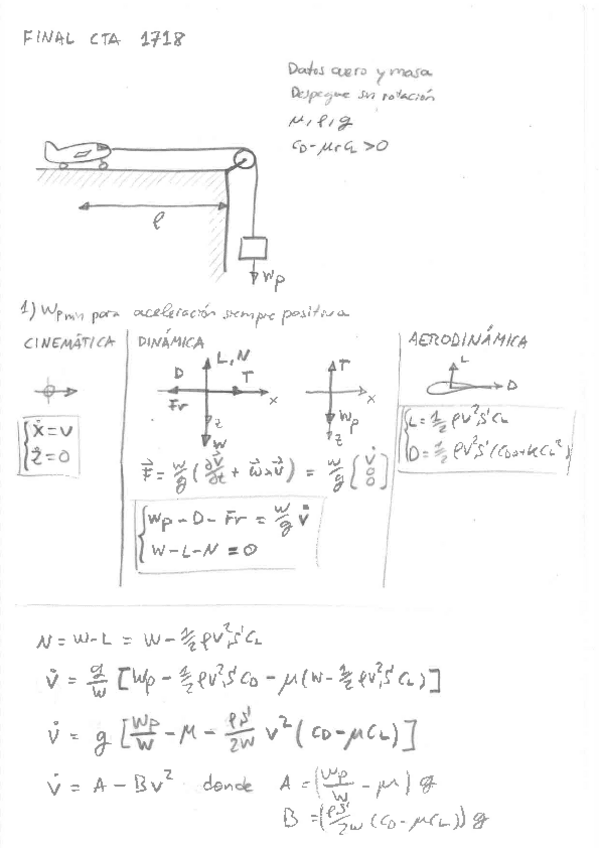 FINAL CTA 1718
Datos aero y masa
Despegue sin rotación
μ, ρ, g
C_D - μ_r C_L > 0
ℓ
W_p
1) W_pmin para aceleración siempre positiva
CINEMÁTICA
ẋ = v
ż = 0
DINÁMICA
L, N
D
T
Fr
x
z
W
T
x
W_p
z
F⃗ = W/g (∂V⃗/∂t + ω⃗ ∧ v⃗) = W/g { v̇ 0 0 }
W_p - D - Fr = W/g v̇
W - L - N = 0
AERODINÁMICA
L
D
L = 1/2 ρ v² S C_L
D = 1/2 ρ v² S (C_D0 + k C_L²)
N = W - L = W - 1/2 ρ v² S C_L
v̇ = g/W [W_p - 1/2 ρ v² S C_D - μ(W - 1/2 ρ v² S C_L)]
v̇ = g [W_p/W - μ - ρS/2W v² (C_D - μC_L)]
v̇ = A - Bv² donde A = (W_p/W - μ) g
B = (ρS/2W (C_D - μC_L)) g